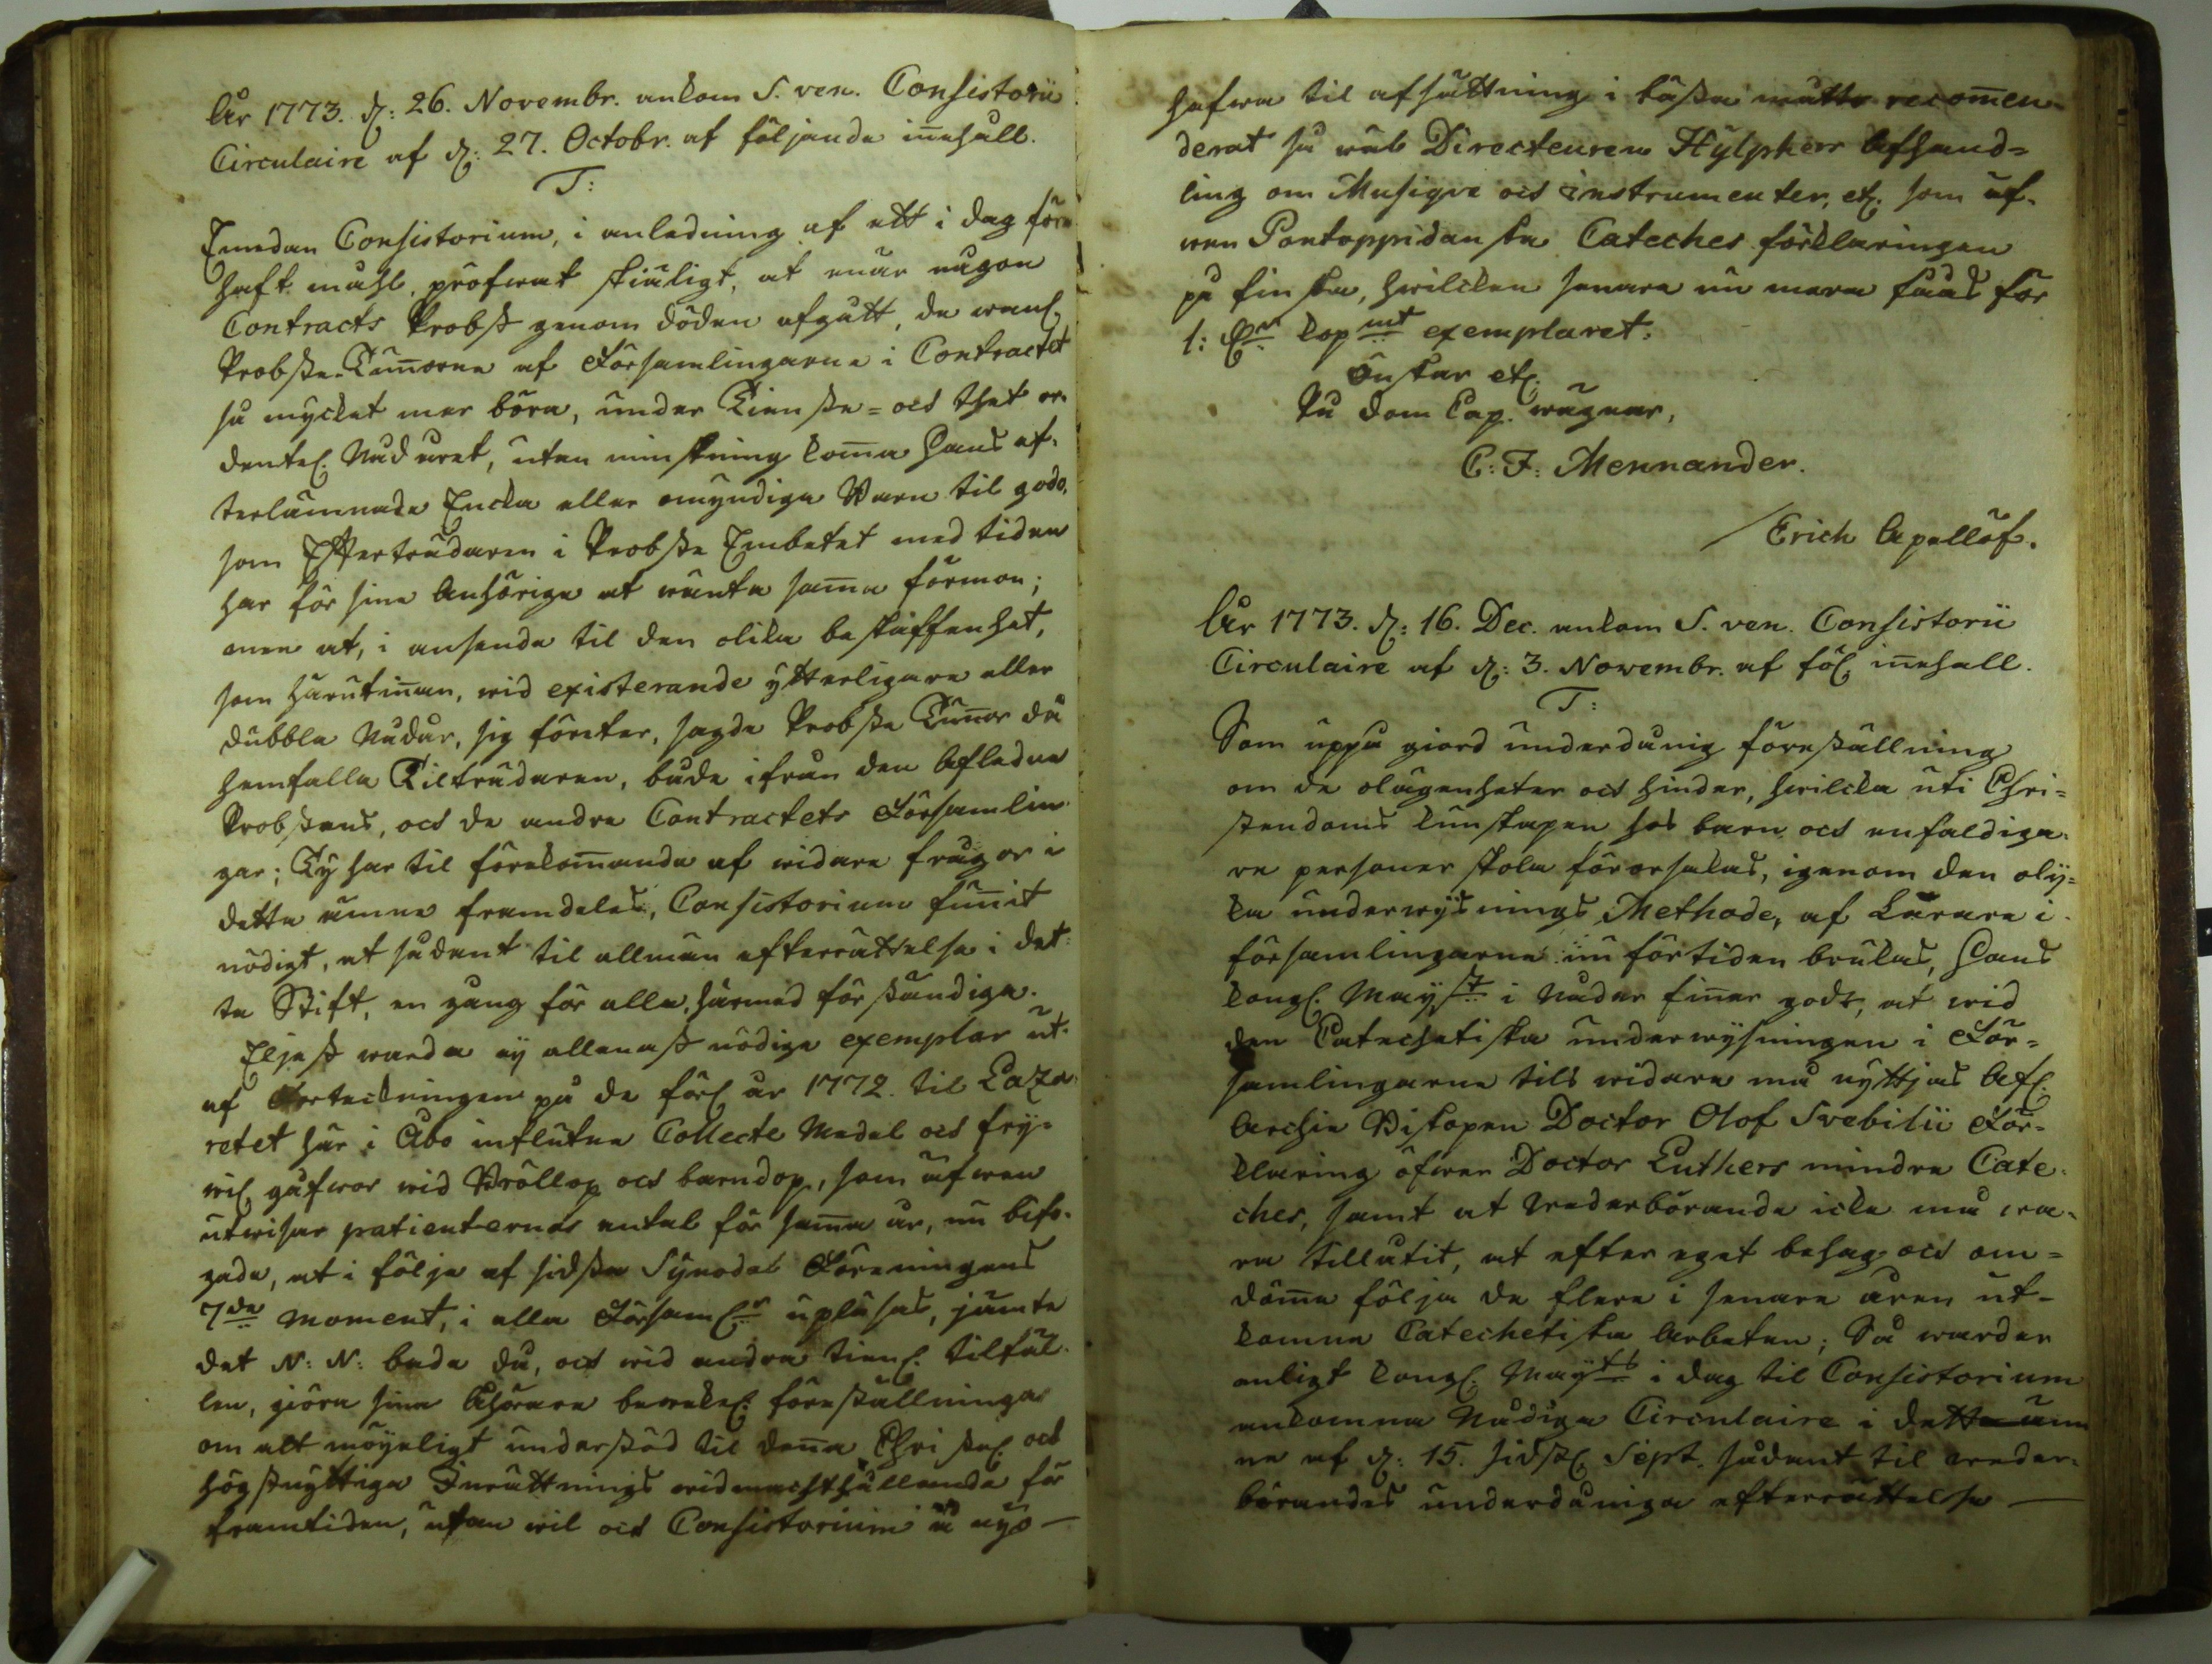 År 1773. d: 26. Novembr. ankom S. ven. Consistorii
Circulaire af d: 27. Octobr. af följande inehåll.
T:
Emedan Consistorium, i anledning af ett i dag före
haft måhl, pröfwat skiäligt, at enär någon
Contracts Probst genom döden afgått, de wanl.
Probste-Tunnorne af Församlingarne i Contractet
så mycket mer böra, under Tienste- och thet or-
dentel. Nådåret, utan minskning koma Hans ef-
terlämnade Encka eller omyndiga Barn til godo,
som Efterträdaren i Probste Embetet med tiden
har för sine Anhörige at wänta sama förmon;
men at, i anseende til den olika beskaffenhet,
som härutinan, wid existerande ytterligare eller
dubbla Nådår, sig företer, sagde Probste Tunor då
hemfalla Tilträdaren, både ifrån den Afledne
Probstens, och de andre Contractets Församlin-
gar; Ty har til förekomande af widare frågor i
detta ämne framdeles, Consistorium funit
nödigt, at sådant til allmän efterrättelse i det-
ta Stift, en gång för alla, härmed förständiga.
Eljest warda ej allenast nödige exemplar ut-
af Förteckningen på de förl. år 1772. til Laza-
retet här i Åbo influtne Collecte Medel och fry-
wil. gåfwor wid Bröllop och barndop, som äfwen
utwisar patienternas antal för sama år, nu bifo-
gade, at i följe af sidsta Synodal Föreningens
7de moment, i alla Församl.r upläsas, jämte
det N: N: bade då, och wid andra tienl. tilfäl-
len, giöra sine Åhörare bewekel. föreställningar
om alt möijeligt understöd til dena Christel. och
högstnyttiga Inrättnings widmachthållande för
framtiden, utan wil och Consistorium å nyo
hafwa til afsättning i bästa måtto recomen-
derat så wäl Directeuren Hülphers Afhand-
ling om Musique och instrumenter, etc. som äf-
wen Pontoppidanska Cateches förklaringen
på finska, hwilcken senare nu mera fåås för
1: Dr kopmt exemplaret.
Önskar etc.
På Dom Cap. wägnar,
C: F: Mennander.
Erich Apellöf.
År 1773. d: 16. Dec. ankom S. ven. Consistorii
Circulaire af d: 3. Novembr. af föl. inehåll.
T:
Som uppå giord underdånig föreställning
om de olägenheter och hinder, hwilcka uti Chri-
stendoms kunskapen hos barn och enfaldiga-
re personer skola förorsakas, igenom den oly-
ka underwysnings Methode, af Lärare i
församlingarne nu för tiden brukas, Hans
Kongl. Mayst i Nåder finer godt, at wid
den Catechetiska underwysningen i För-
samlingarne tils widare må nyttjas Afl.
Archie Biskopen Doctor Olof Svebilii För-
klaring öfwer Doctor Luthers mindre Cate-
ches, samt at wederbörande icke må wa-
ra tillåtit, at efter eget behag och om-
döme följa de flere i senare åren ut-
komne Catechetiska Arbeten; Så warder
enligt Kongl. Mayts i dag til Consistorium
ankomne Nådiga Circulaire i detta äm
ne af d: 15. sidstl. Sept. sådant til weder-
börandes underdåniga efterrättelse